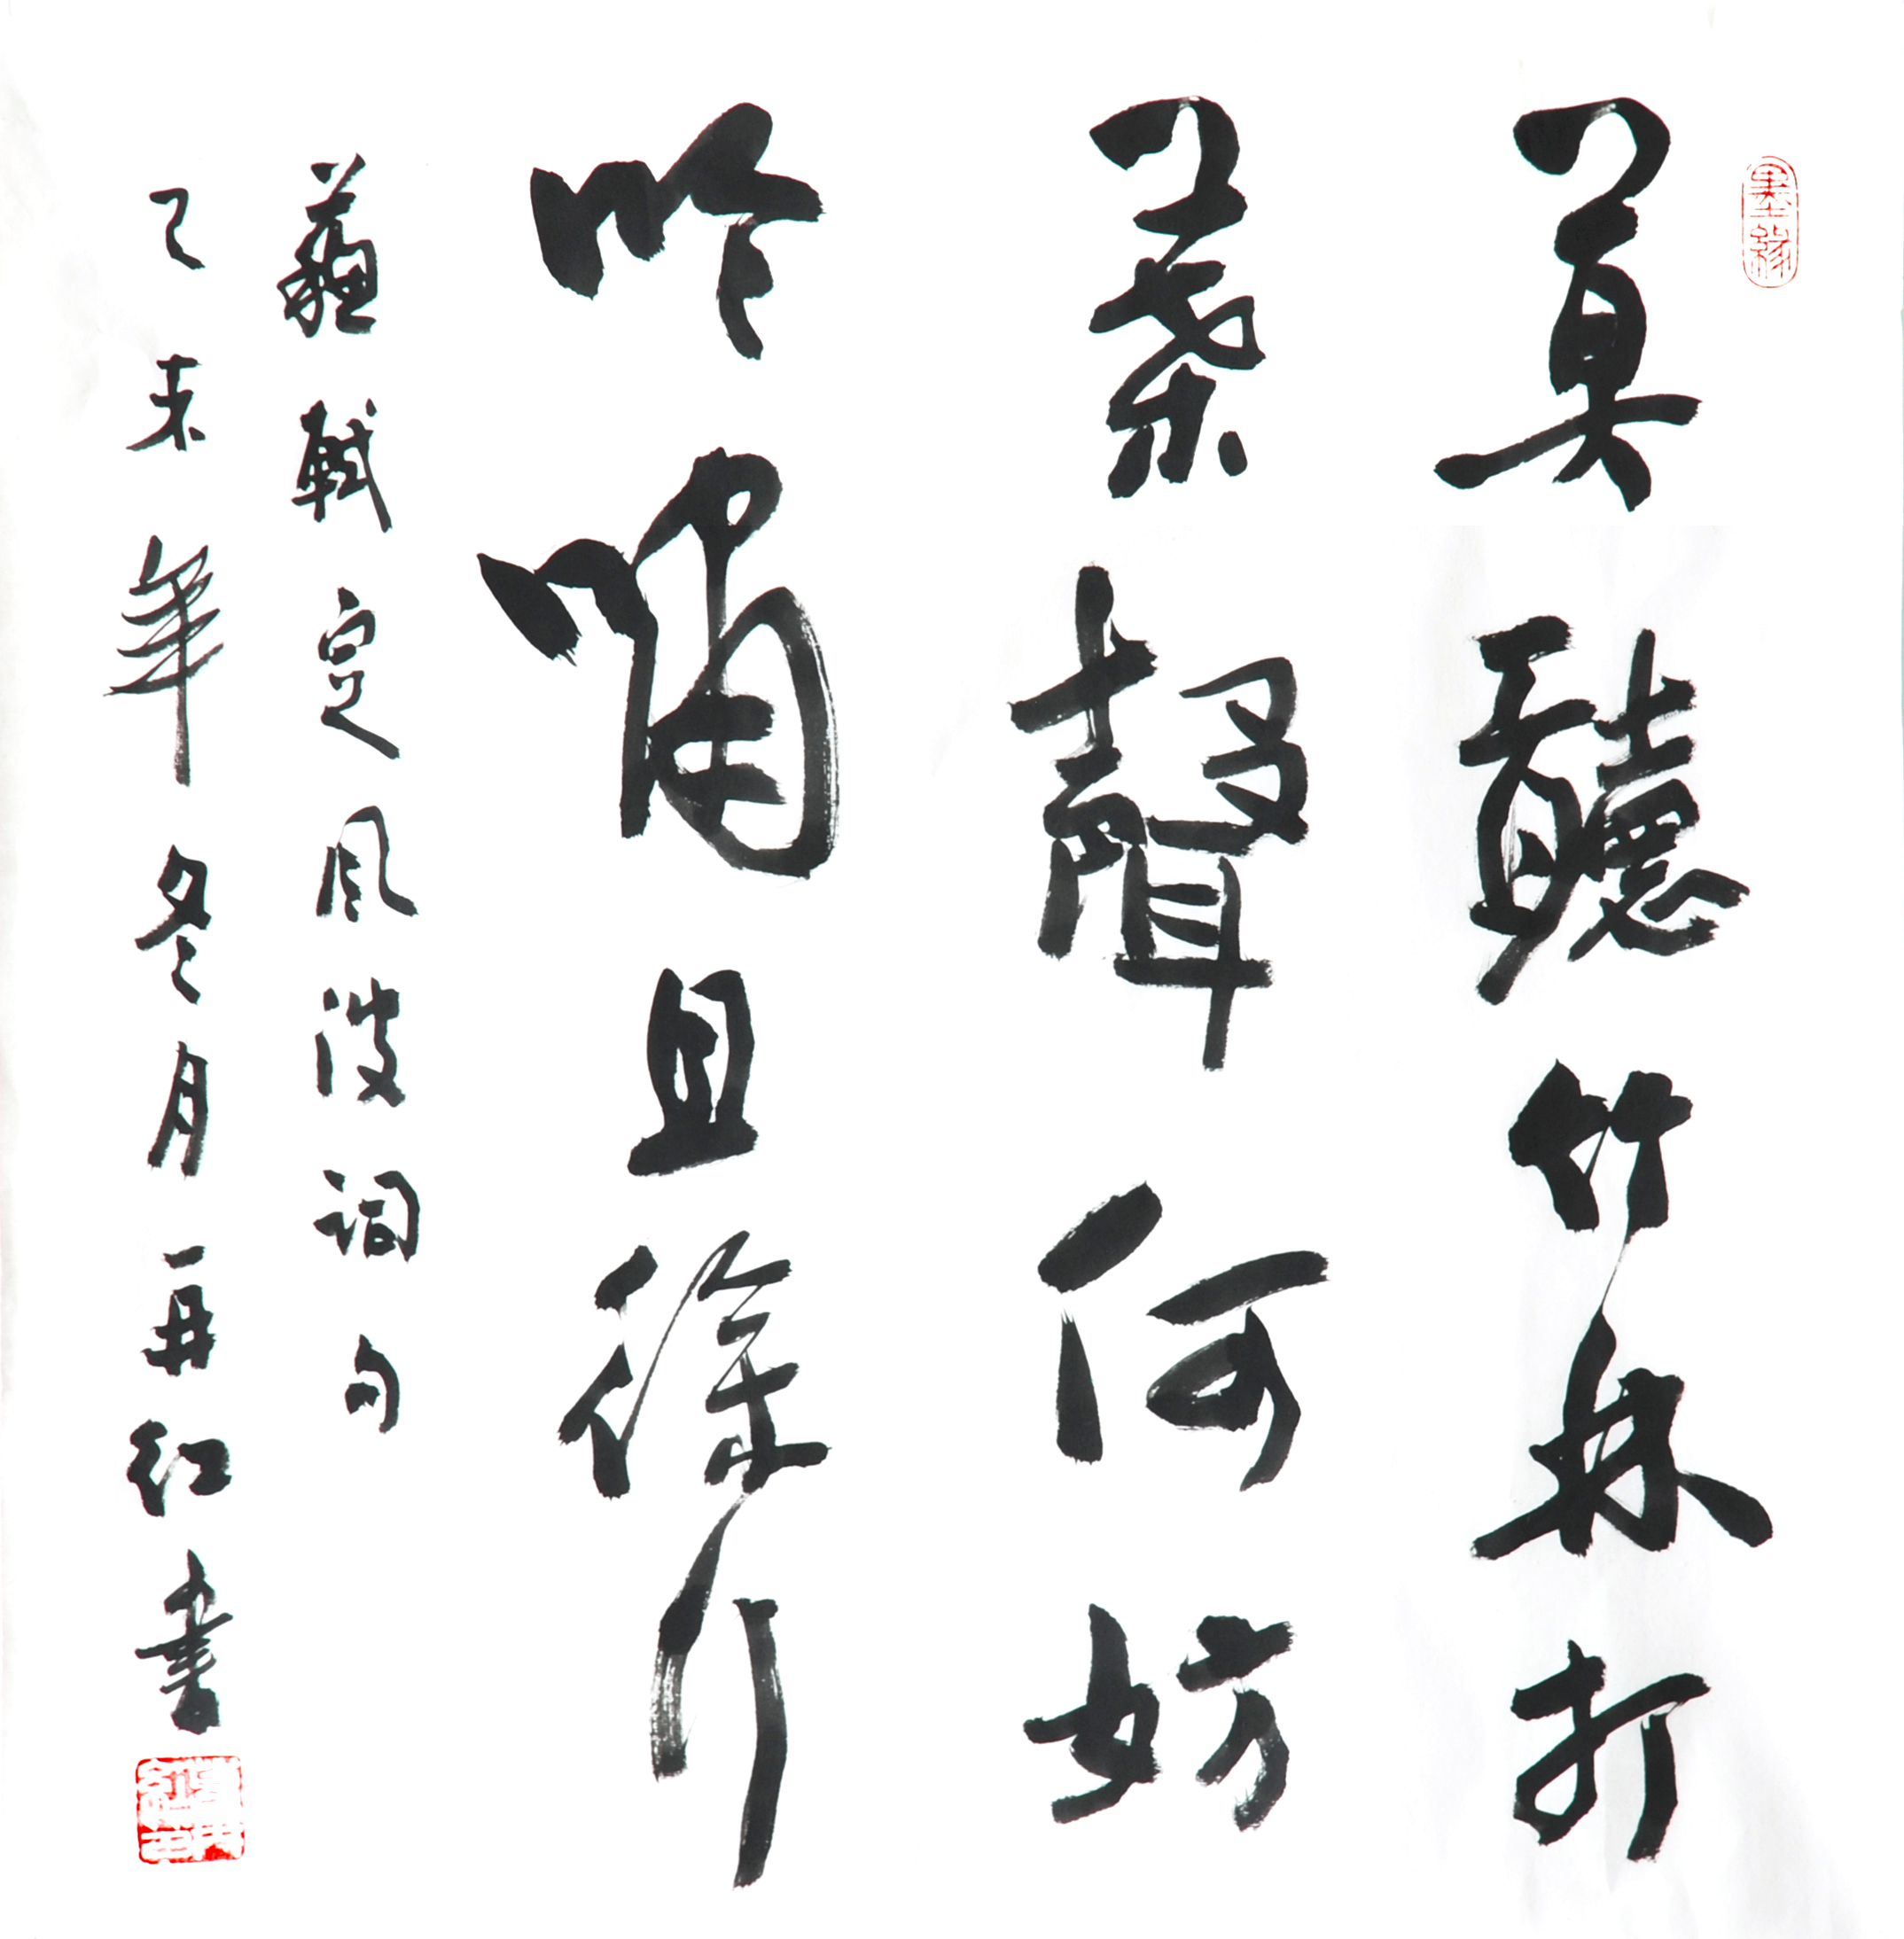 墨緣
莫聽竹林打
葉聲何妨
吟嘯且徐行
蘇軾定風波詞句
己未年冬月再红書